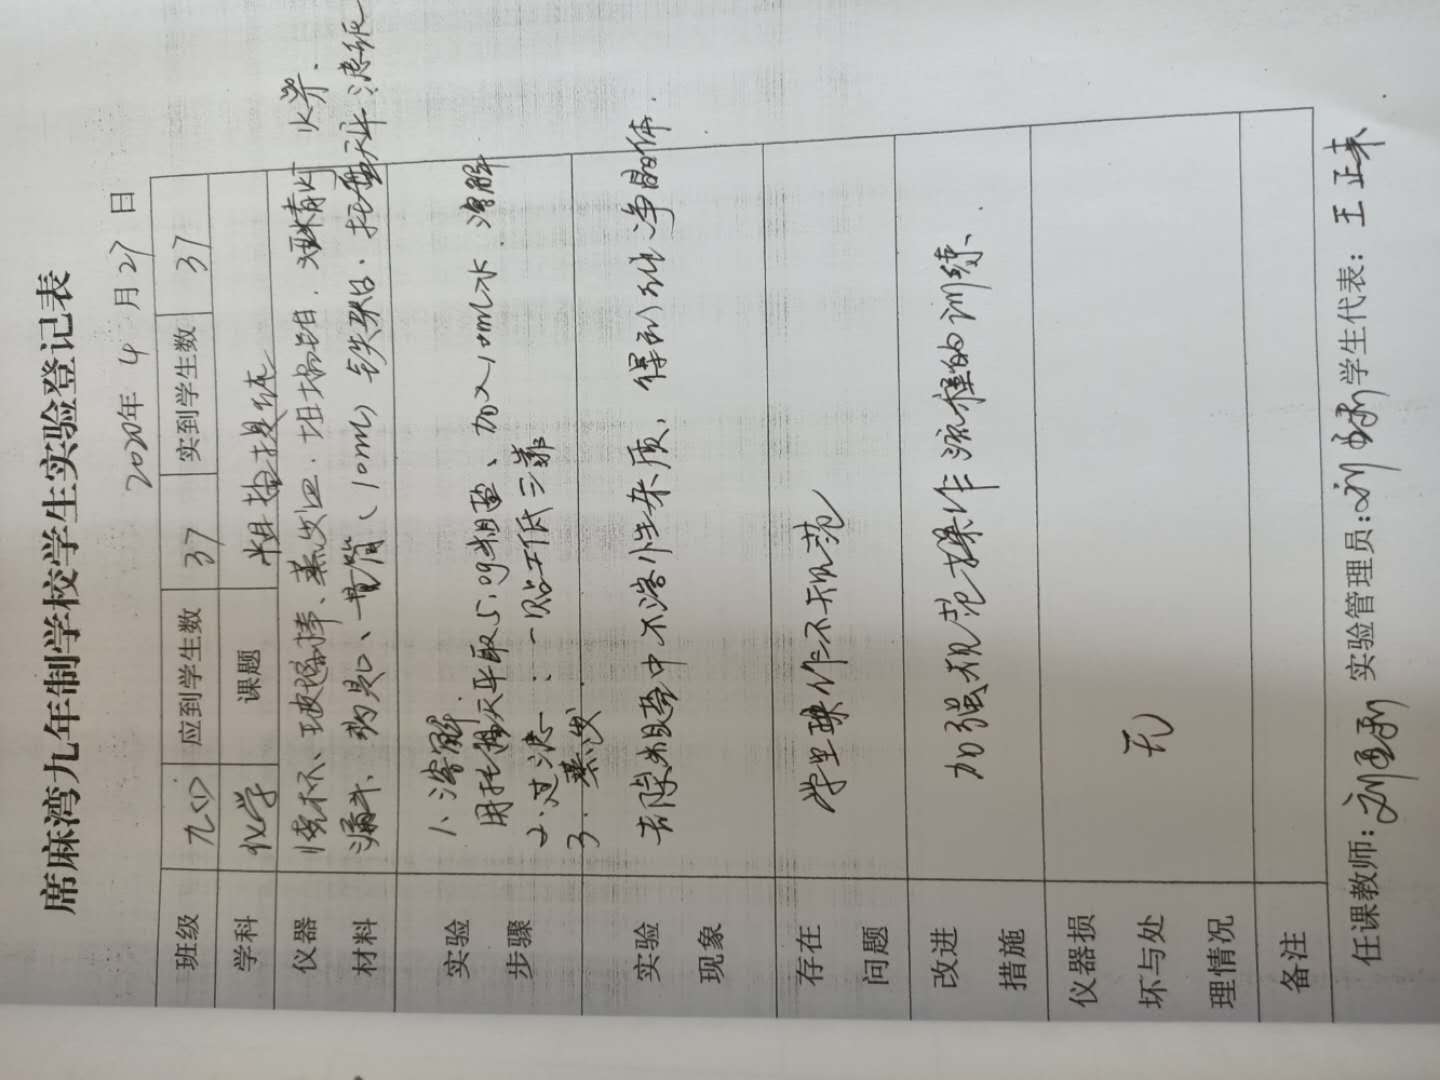 席麻湾九年制学校学生实验登记表
2020年 4 月 27 日
班级 九(1) 应到学生数 37 实到学生数 37
学科 化学 课题 粗盐提纯
仪器 烧杯、玻璃棒、蒸发皿、坩埚钳、酒精灯 火柴、
材料 漏斗、药匙、量筒(10mL) 铁架台、托盘天平 滤纸
实验 1、溶解
用托盘天平取5.0g粗盐、加入10mL水 溶解
步骤 2、过滤:一贴二低三靠
3、蒸发
实验 去除粗盐中不溶性杂质,得到纯净晶体.
现象
存在 学生操作不规范
问题
改进 加强规范操作流程的训练、
措施
仪器损
坏与处 无
理情况
备注
任课教师: 实验管理员: 学生代表:王